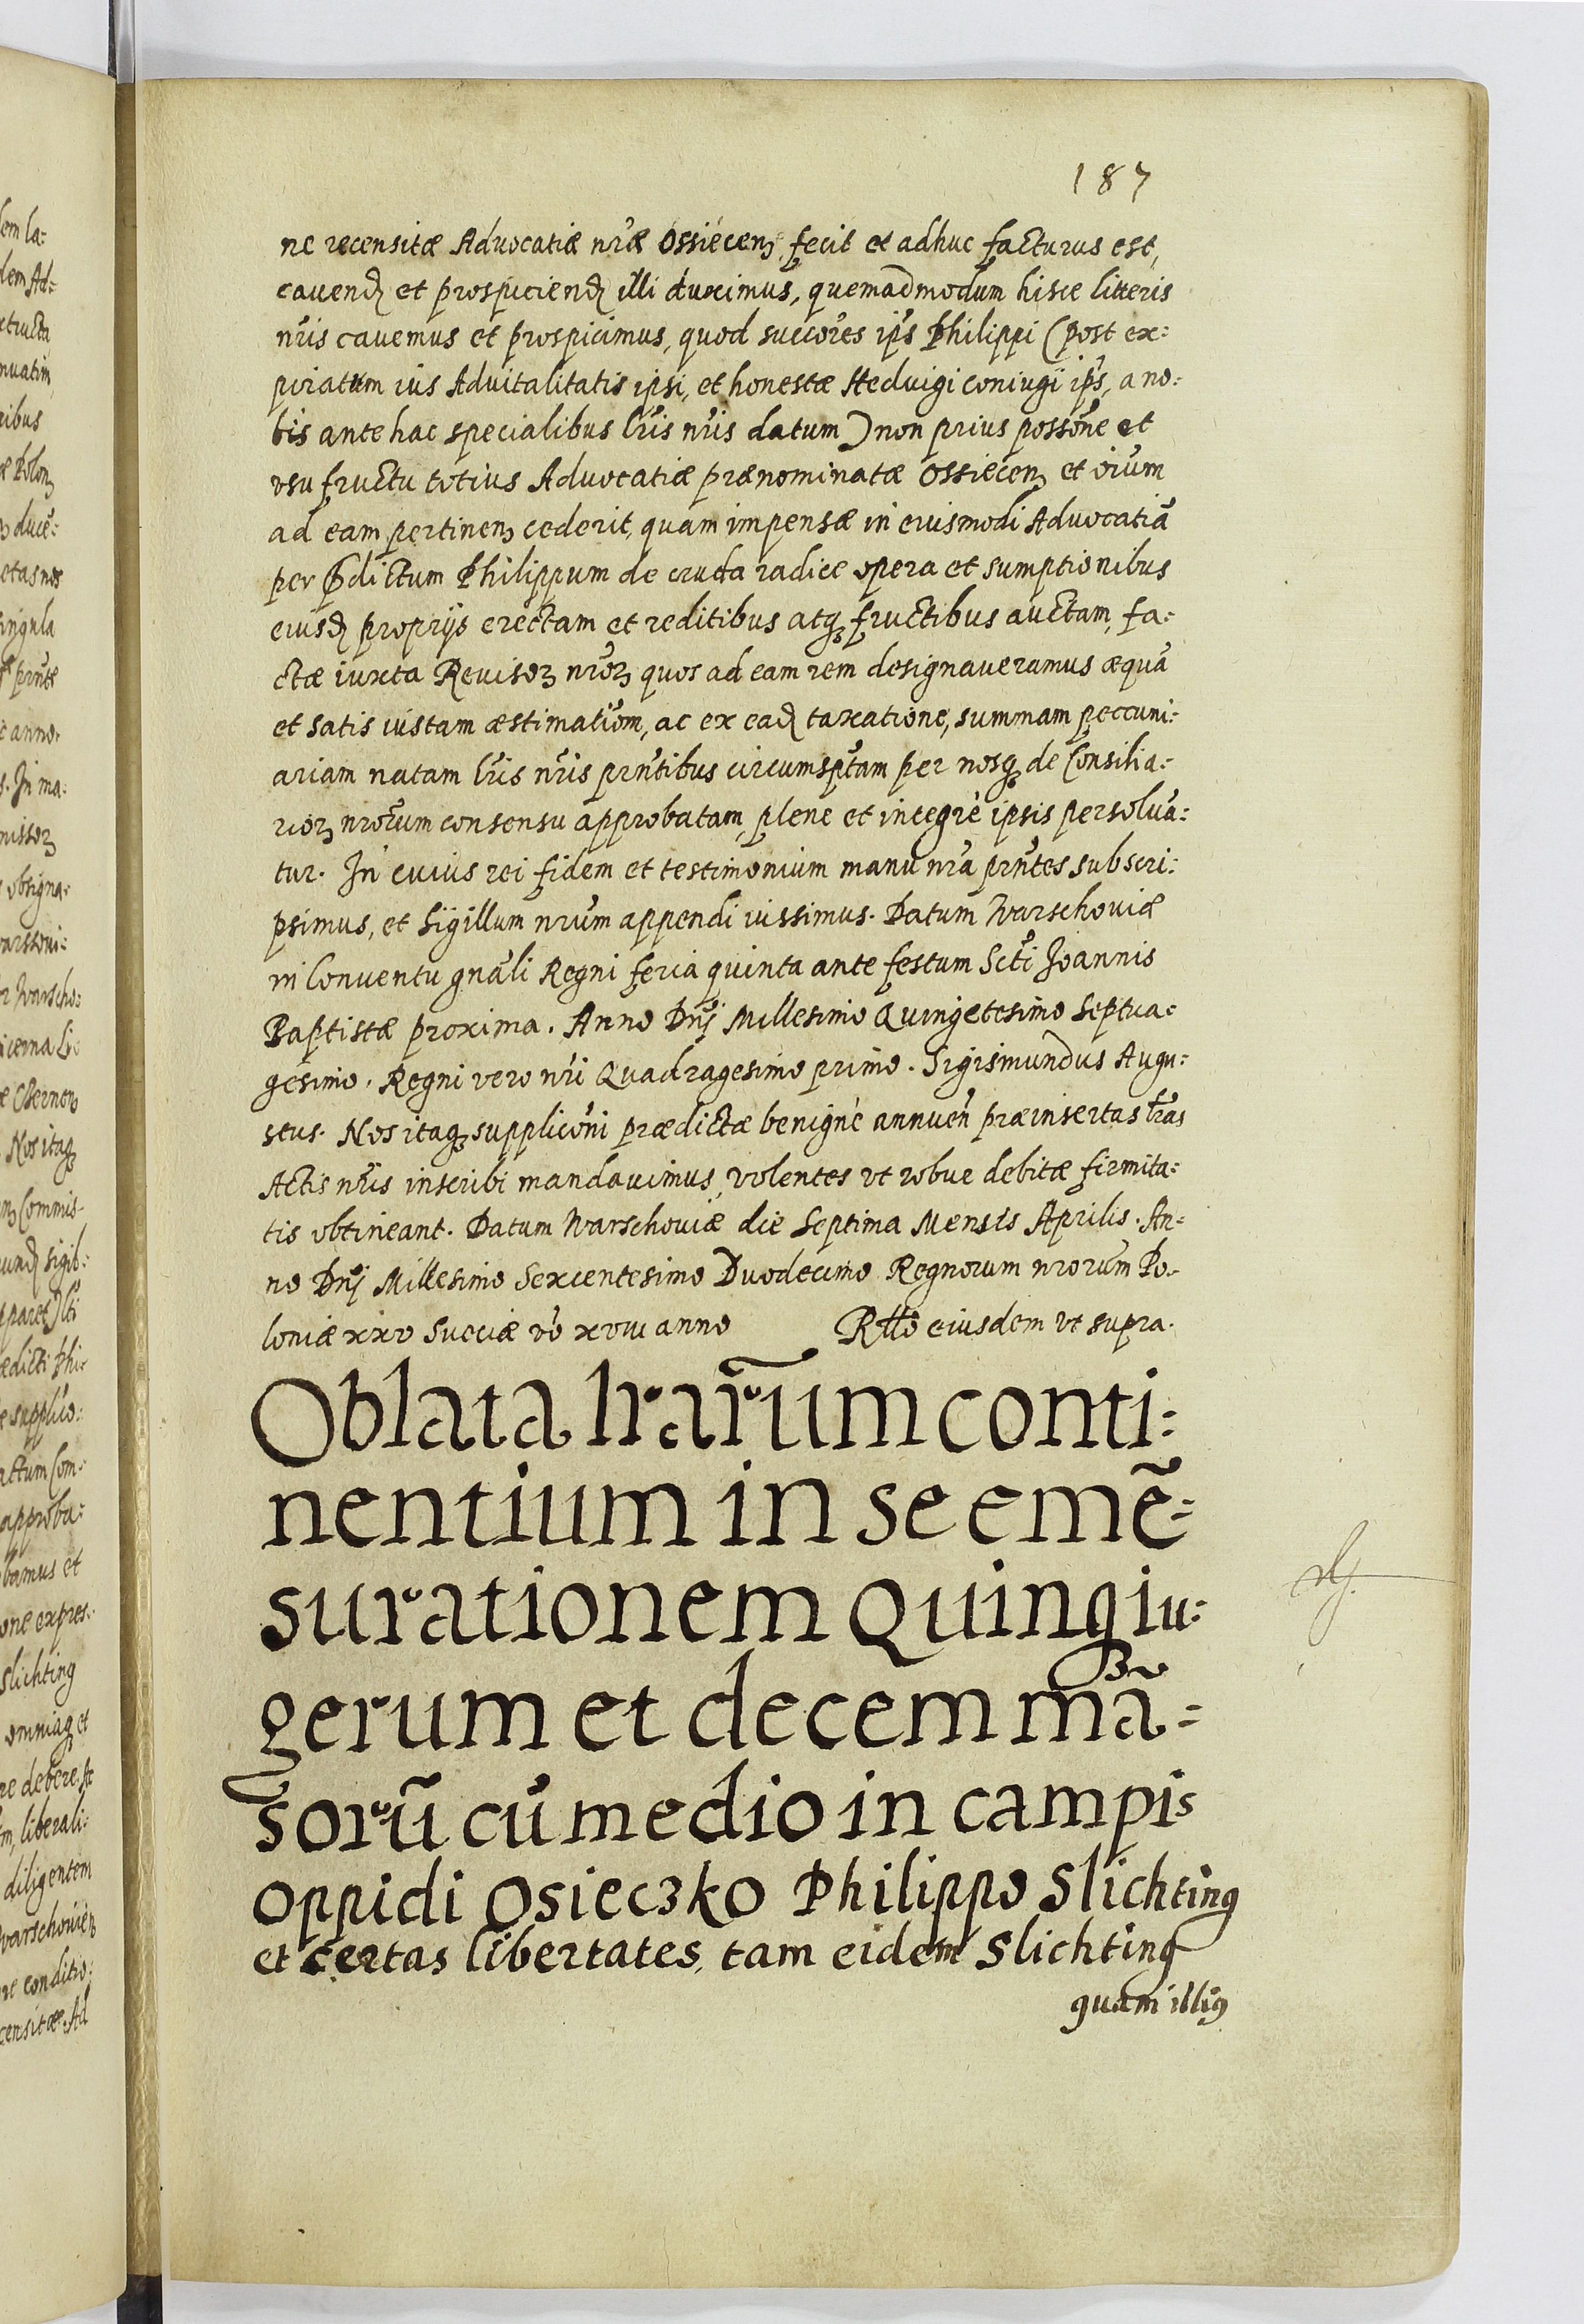 187
ne recensitæ Advocatiæ nr̃æ Ossiecenꝫ fecit et adhuc facturus est,
cavendꝫ et prospiciendꝫ illi duximus, quemadmodum hisce litteris
nr̃is cavemus et prospicimus, quod succor̃es ip̃s Philippi (post ex:
piratum ius Advitalitatis ipsi, et honestæ Hedvigi coniugi ip̃s, a no:
bis antehac specialibus lr̃is nr̃is datum) non prius possõne et
vsufructu totius Advocatiæ prænominatæ Ossiecenꝫ et oĩum
ad eam pertinenꝫ cederit, quam impensæ in eiusmodi Advocatiã
per p̃dictum Philippum de cruda radice opera et sumptionibus
eiusdꝫ proprijs erectam et reditibus atqꝫ fructibus auctam, fa:
ctæ iuxta Revisoꝝ nr̃oꝝ quos ad eam rem designaveramus æquã
et satis iustam æstimatiõm, ac ex eadꝫ taxatione, summam peccuni:
ariam natam lr̃is nr̃is prñtibus circumsp̃tam per nosqꝫ de Consilia:
rioꝝ nrõrum consensu approbatam, plene et integrè ipsis persolvã:
tur. In cuius rei fidem et testimonium manu nr̃a prñtes subscri:
psimus, et Sigillum nrũm appendi iussimus. Datum Warschoviæ
in Conventu gnãli Regni feria quinta ante festum Sc̃ti Joannis
Baptistæ proxima. Anno Dnĩ Millesimo Quingẽtesimo Septua:
gesimo. Regni vero nr̃i Quadragesimo primo. Sigismundus Augu:
stus. Nos itaqꝫ supplicõni prædictæ benignè annueñ præinsertas lr̃as
Actis nr̃is inscribi mandavimus, volentes vt robur debitæ firmita:
tis obtineant. Datum Warschoviæ die Septima Mensis Aprilis. An:
no Dnĩ Millesimo Sexcentesimo Duodecimo Regnorum nrorũm Po:
loniæ xxv Sueciæ võ xviii anno Rttõ eiusdem vt supra.
Oblata lrarũm conti:
nentium in se emẽ:
surationem Quinqꝫ iu:
gerum et decem mã:
sorũ cũ medio in campis
oppidi Osieczko Philippo Slichting
et certas libertates, tam eidem Slichting
quam illiꝰ